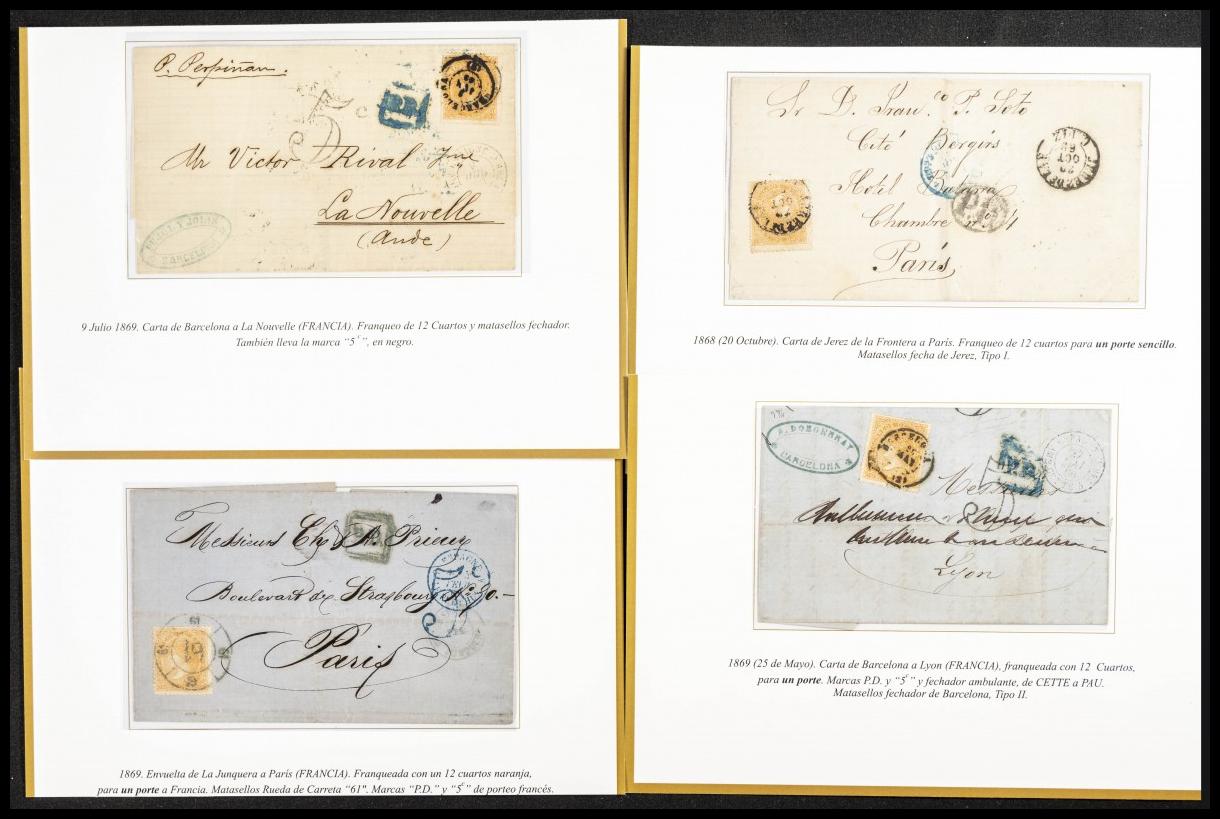 P. Perpiñan.
Mr Victor Rival Jne
La Nouvelle
(Aude)
BARCELONA
9 Julio 1869. Carta de Barcelona a La Nouvelle (FRANCIA). Franqueo de 12 Cuartos y matasellos fechador.
También lleva la marca “5ᶜ”, en negro.
Sr D. Fran.co P. Soto
Cité Bergère
Hotel
Chambre nº 4
París
20
OCT
68
P.D.
1868 (20 Octubre). Carta de Jerez de la Frontera a París. Franqueo de 12 cuartos para un porte sencillo.
Matasellos fecha de Jerez, Tipo I.
Messieurs Chs A. Prieux
Boulevart de Strasbourg Nº 90.-
Paris
61
1869. Envuelta de La Junquera a París (FRANCIA). Franqueada con un 12 cuartos naranja,
para un porte a Francia. Matasellos Rueda de Carreta “61”. Marcas “P.D.” y “5ᶜ” de porteo francés.
BARCELONA
Messieurs
Lyon
1869 (25 de Mayo). Carta de Barcelona a Lyon (FRANCIA), franqueada con 12 Cuartos,
para un porte. Marcas P.D. y “5ᶜ” y fechador ambulante, de CETTE a PAU.
Matasellos fechador de Barcelona, Tipo II.